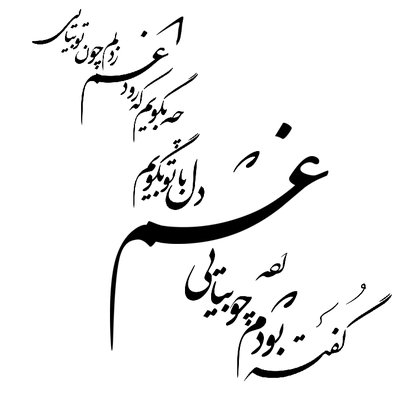 گفته بودم چو بیایی
غم
دل با تو بگویم
چه بگویم که رود
غم
ز دلم چون تو بیایی